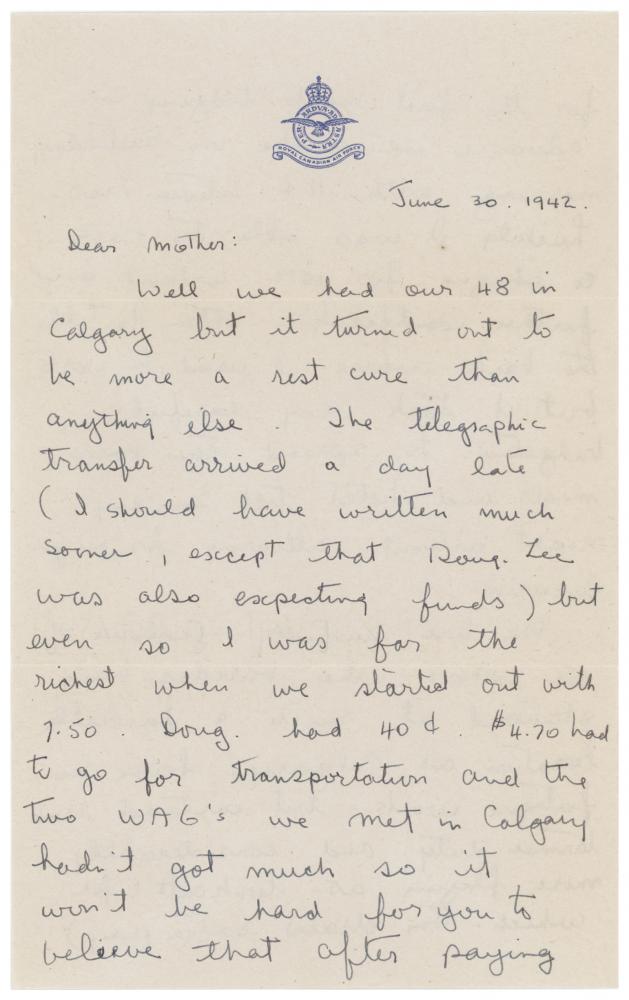 PER · ARDVA · AD ASTRA
ROYAL CANADIAN AIR FORCE
June 30. 1942.
Dear Mother:
Well we had our 48 in
Calgary but it turned out to
be more a rest cure than
anything else. The telegraphic
transfer arrived a day late
(I should have written much
sooner, except that Doug. Lee
was also expecting funds) but
even so I was far the
richest when we started out with
7.50. Doug. had 40¢. $4.70 had
to go for transportation and the
two WAG's we met in Calgary
hadn't got much so it
won't be hard for you to
beleive that after paying